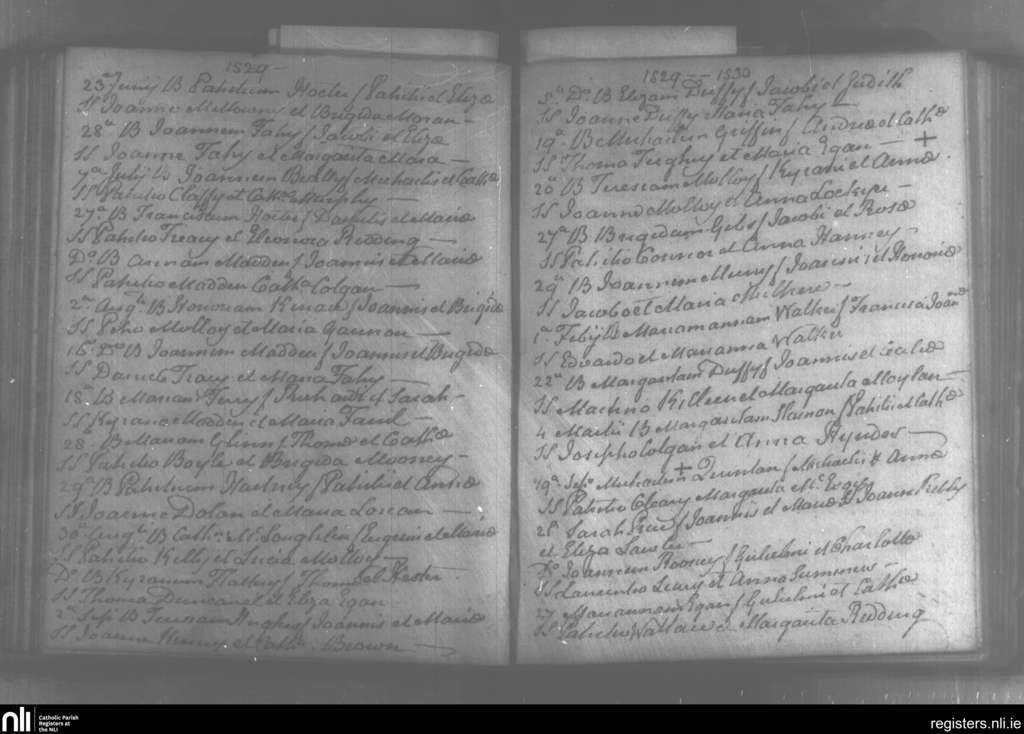 1829 —
23a Junij B Patritium Hoctor f Patritii et Eliza
SS Joanne Melloowny et Brigida Moran —
28a B Joannem Fahy f Jacobi et Eliza
SS Joanne Fahy et Margarita Mara —
Julii B Joannem Bally f Michaelis et Cath
SS Patritio Claffy et Cath Murphy —
27a B Franciscum Hoctor f Danielis et Maria
SS Patritio Treacy et Eleonora Redding —
Do B Annam Madden f Joannis et Maria
SS Patritio Madden Cath Colgan —
2a Aug B Honoriam Kinan f Joannis et Brigida
SS Petro Molloy et Maria Gannon —
16 Do B Joannem Madden f Joannis et Brigida
SS Daniele Tracy et Maria Fahy —
18a B Mariam Terry f Richardi et Sarah —
SS Kyrano Madden et Maria Faul —
28a B Mariam Glinn f Thoma et Catha
SS Patritio Boyle et Brigida Mooney —
29 B Patritium Hackney f Patritii et Anna
SS Joanne Dolan et Maria Lorcan —
30a Aug B Cath McLoughlin f Eugenii et Maria
SS Patritio Kelly et Lucia Molloy —
Do B Kyranum Flattery f Thoma et Hester
SS Thoma Duncan et Eliza Egan
2a Sep B Teresiam Hughes f Joannis et Maria
SS Joanne Henry et Cath Brown —
1829 — 1830
Do B Elizam Duffy f Jacobi et Judith
SS Joanne Duffy Maria Fahy —
19a B Michaelem Griffin f Andrea et Catha
SS Thoma Feighry et Maria Egan — +
20a B Teresiam Molloy f Kyrani et Anna
SS Joanne Molloy et Anna Lockye —
27a B Brigidam Gill f Jacobi et Rosa
SS Patritio Connor et Anna Harney —
29a B Joannem f Joannis et Honoria
SS Jacobo et Maria
1a Feby B Mariannam Walker f Francisci Joan
SS Edvardo et Marianna Walker
22a B Margaritam Duffy f Joannis et Cecilia
SS Mathew Killeen et Margarita Moylan —
4 Martii B Margaritam Hannon f Patritii et Catha
SS Josepho Colgan et Anna Hyndes —
19a Sep Michaelem + Quinlan f Michaelis & Anna
SS Patritio Cleary Margarita McEvoy
28 Sarah f Joannis et Maria SS Joanne Kelly
et Eliza Lawler —
Do Joannem Hooney f Gulielmi et Charlotta
SS Laurentio et Anna Summers —
27 Mariannam Egan f Gulielmi et Catha
SS Patritio Wallace et Margarita Redding
nli
Catholic Parish
Registers at
the NLI
registers.nli.ie